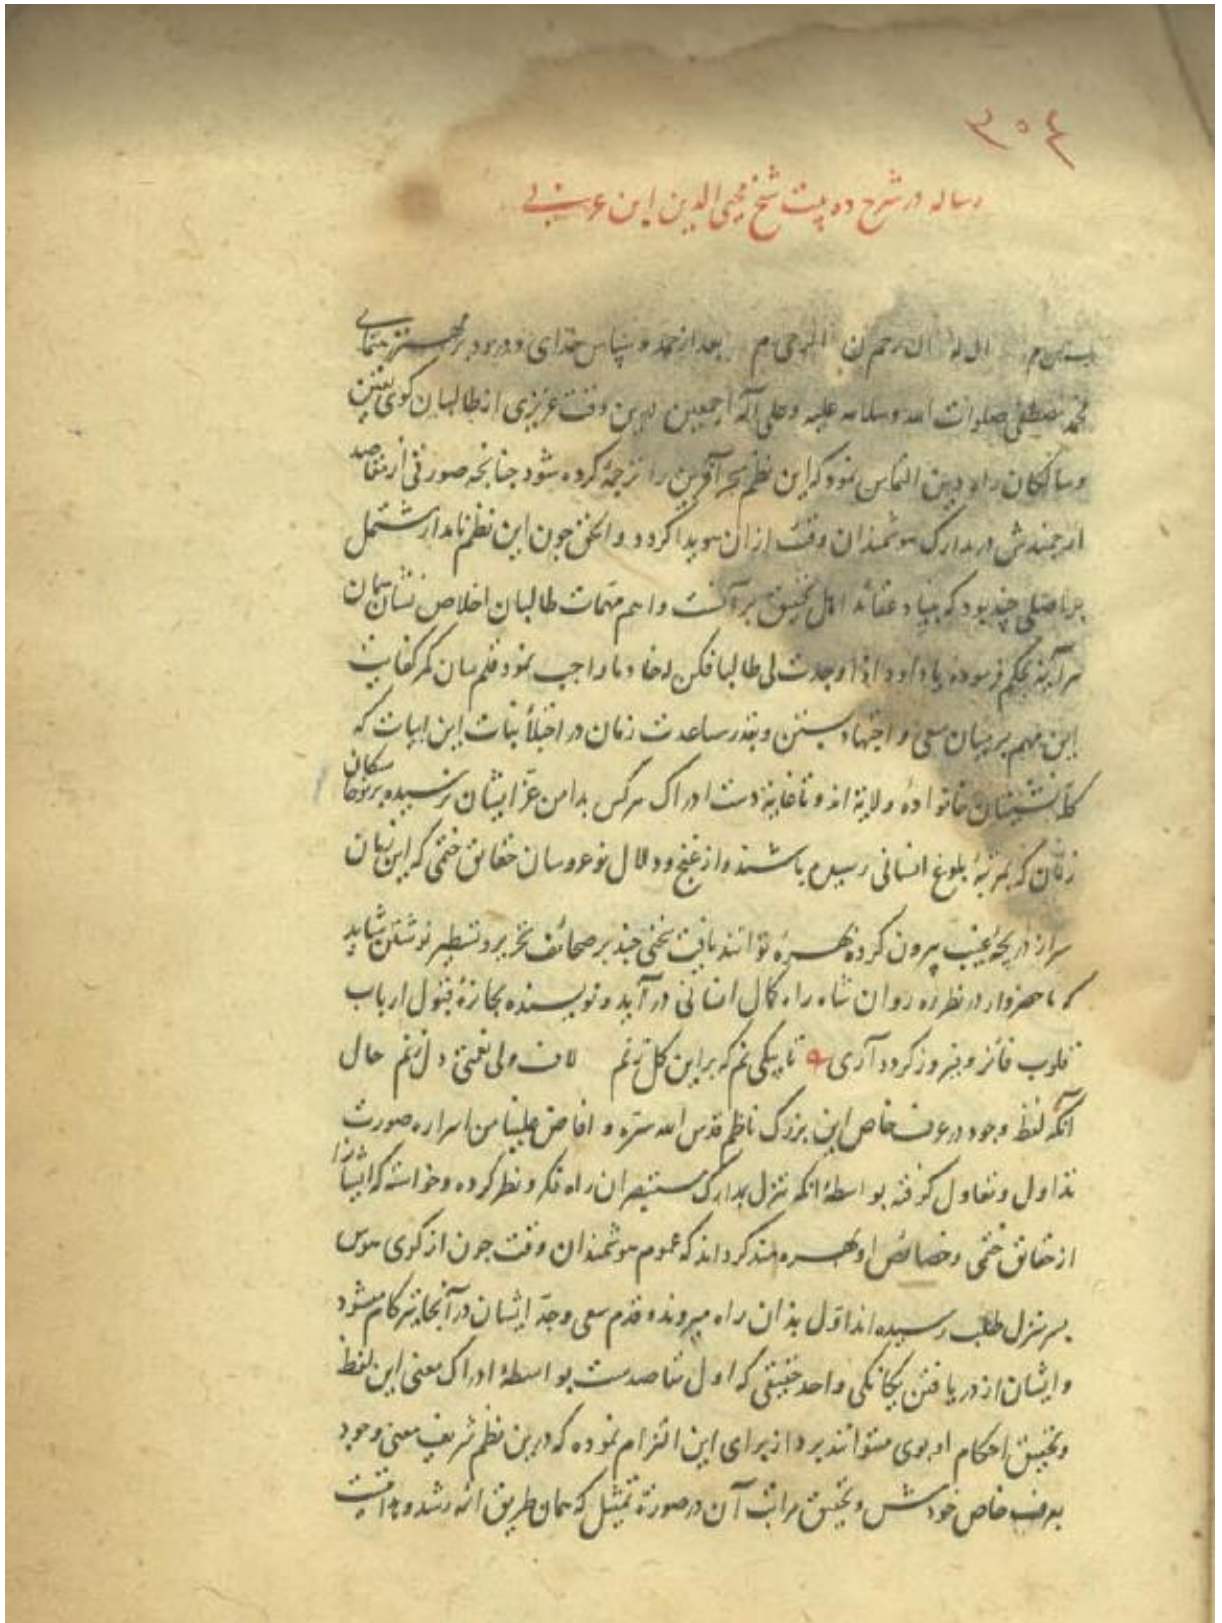 ۳۰۴
رساله در شرح ده بیت شیخ محیی الدین ابن عربی
بسم ال له ال رحم ن الرحی م بعد از حمد و سپاس خدای و درود بر مهتر
محمد مصطفی صلوات الله وسلامه علیه وعلی آله اجمعین درین وقت عزیزی از طالبان کوی یقین
وسالکان راه دین التماس نمود که این نظم سحر آفرین را ترجمهٔ کرده شود جنانجه صورتی از مقاصد
ارجمندش در مدارک هوشمندان وقت ازان هویدا کردد والحق جون این نظم نامدار مشتمل
بر اصلی چند بود که بنیاد عقائد اهل تحقیق بر آنست واهم مهمات طالبان اخلاص نشان همان
هر آینه بحکم فرموده یا داود اذا وجدت لی طالبا فکن له خادما واجب نمود قلم سان کمر کفایت
این مهم بر میان سعی و اجتهاد بستن وبقدر مساعدت زمان در اجتلأ بنات این ابیات که
کله نشینان خانوادهٔ ولایة اند و تا غایة دست ادراک هر کس بدامن عزّ ایشان نرسیده بر نوخا سکان
زمان که بمرتبهٔ بلوغ انسانی رسیده باشند و از غنج و دلال نو عروسان حقائق ختمی که این زمان
سر از دریجهٔ غیب بیرون کرده بهرهٔ توانند یافت سخنی چند بر صحائف تحریر و تسطیر نوشتن شاید
که ما حضروار در نظر ره روان شاه راه کمال انسانی در آید و نویسنده بجازهٔ قبول ارباب
قلوب فائز و فیروز کردد آری تا یکی نم که بر این کل زنم لاف ولی نعمتئ دل زنم حال
آنکه لفظ وجود در عرف خاص این بزرک ناظم قدس الله سره و افاض علینا من اسراره صورت
تداول و تعاول کرفته بواسطهٔ انکه تنزل بمدارک مستبصران راه فکر و نظر کرده و خواسته که ایشانرا
از حقائق ختمی و خصائص او بهره مند کرداند که عموم هوشمندان وقت جون از کوی هوس
بسر منزل طلب رسیده اند اوّل بذان راه میروند و قدم سعی وجدّ ایشان در آنجا تیز کام میشود
و ایشان از دریافتن یکانکی واحد حقیقی که اول مقاصدست بواسطهٔ ادراک معنی این لفظ
و تحقیق احکام او بوی میتوانند برد از برای این التزام نموده که درین نظم شریف معنی وجود
بعرف خاص خودش و تحقیق مراتب آن در صورة تمثیل که همان طریق ائمه رشد و هدایتست